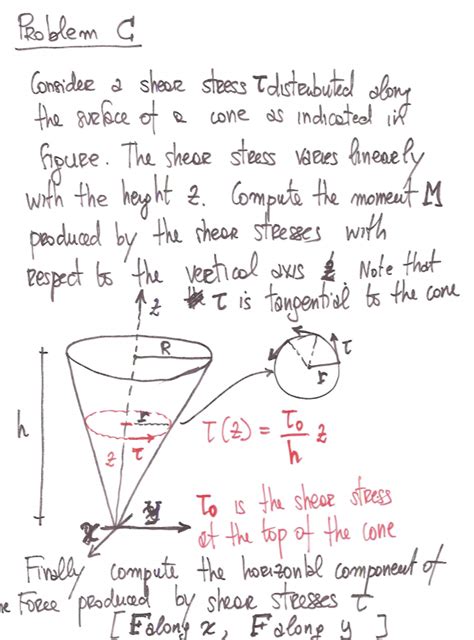 Problem C
Consider a shear stress τ distributed along
the surface of a cone as indicated in
figure. The shear stress varies linearly
with the height z. Compute the moment M
produced by the shear stresses with
respect to the vertical axis z. Note that
τ is tangential to the cone
z
R
τ
r
r
h
τ(z) = τ₀/h z
z
τ
y
x
τ₀ is the shear stress
at the top of the cone
Finally compute the horizontal component of
he Force produced by shear stresses τ
[F along x, F along y]